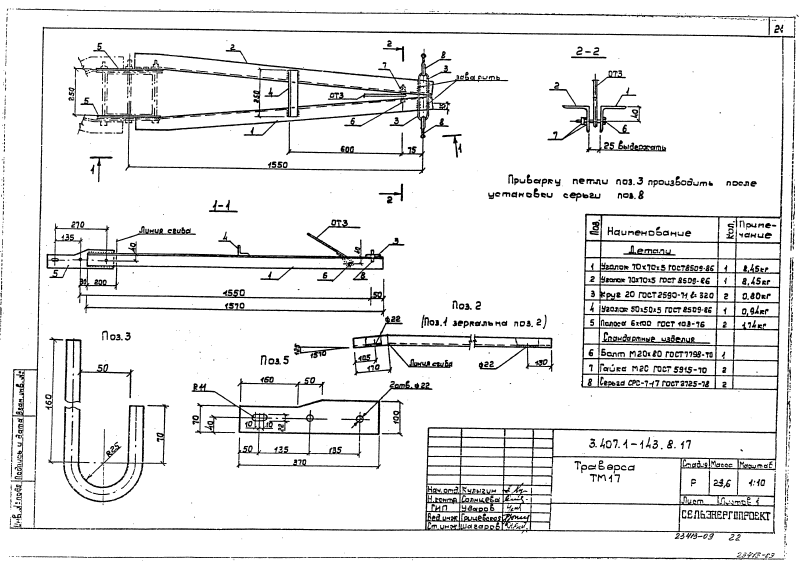 21
5
2
2
7
8
3
заварить
250
4
350
ОТЗ
5
1
6
3
8
10
600
75
1550
1
1
2
2-2
ОТЗ
2
1
40
7
6
25 выдержать
Приварку петли поз.3 производить после
установки серьги поз.8
1-1
270
135
Линия сгиба
40
4
ОТЗ
3
5
200
1
6
8
1550
50
1570
Поз.3
50
160
70
R25
Поз.2
(Поз.1 зеркальна поз.2)
ф22
1570
105
170
Линия сгиба
ф22
130
Поз.5
160
50
R11
2отв. ф22
70
40
100
10
10
22
50
135
135
370
Поз.
Наименование
Кол.
Приме-
чание
Детали
1 Уголок 70х70х5 ГОСТ 8509-86 1 8,45кг
2 Уголок 70х70х5 ГОСТ 8509-86 1 8,45кг
3 Круг 20 ГОСТ 2590-71 ℓ=320 2 0.80кг
4 Уголок 50х50х5 ГОСТ 8509-86 1 0,94кг
5 Полоса 6х100 ГОСТ 103-76 2 1,74кг
Стандартные изделия
6 Болт М20х80 ГОСТ 7798-70 1
7 Гайка М20 ГОСТ 5915-70 2
8 Серьга СРС-7-17 ГОСТ 2725-78 2
3.407.1-143.8.17
Траверса
ТМ17
Стадия Масса Масштаб
Р 23,6 1:10
Лист Листов 1
СЕЛЬЭНЕРГОПРОЕКТ
Нач.отд. Кулыгин
Н.контр. Солнцева
ГИП Ударов
Вед.инж. Грищевская
Ст.инж. Шагаров
Инв.№подл. Подпись и дата Взам.инв.№
23413-09 22
23413-09